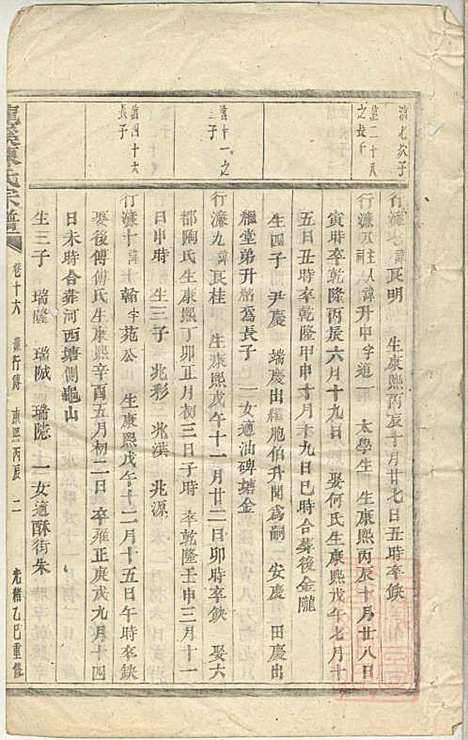 清七次子
行濂七諱長明 生康熙丙辰十月廿七日五時卒缺
進二十八之長子
行濂五主人祠諱升中字道一 太學生 生康熙丙辰十月廿八日
寅時卒乾隆丙辰六月十九日 娶何氏生康熙戊午七月十
五日丑時卒乾隆甲申十月十九日巳時合葬後金隴
生四子 尹慶 端慶出繼胞伯升聞為嗣 安慶 田慶出
繼堂弟升 為長子 一女適油碑塘金
進十一之三子
行濂九諱長桂 生康熙戊午十一月廿二日卯時卒缺 娶六
都陶氏生康熙丁卯正月初三日子時 卒乾隆壬申三月十一
日申時 生三子 兆彩 兆漢 兆源
進四十六長子
行濂十諱翰字苑公 生康熙戊午十二月十五日午時卒缺
娶後傅傅氏生康熙辛酉五月初二日 卒雍正庚戌九月十四
日未時合葬河西塘側龜山
生三子 瑞隆 瑞陞 瑞隐 一女適酥街朱
陳氏宗譜 卷十六 濂行傳 康熙丙辰 二 光緒乙巳重修